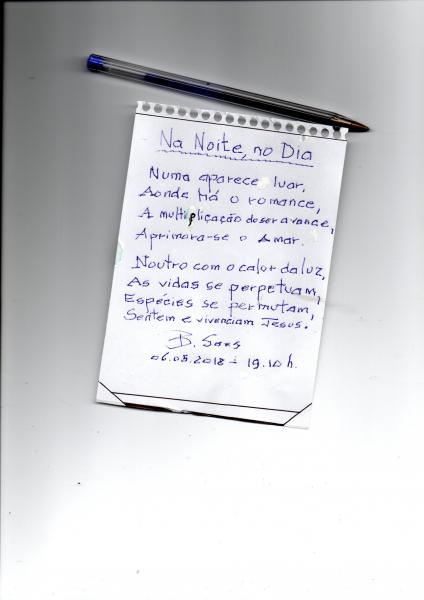 Na Noite, no Dia
Numa aparece luar,
Aonde há o romance,
A multiplicação do ser avance,
Aprimora-se o Amar.
Noutro com o calor da luz,
As vidas se perpetuam,
Espécies se permutam,
Sentem e vivenciam Jesus.
B.
06.08.2018 - 19.10 h.